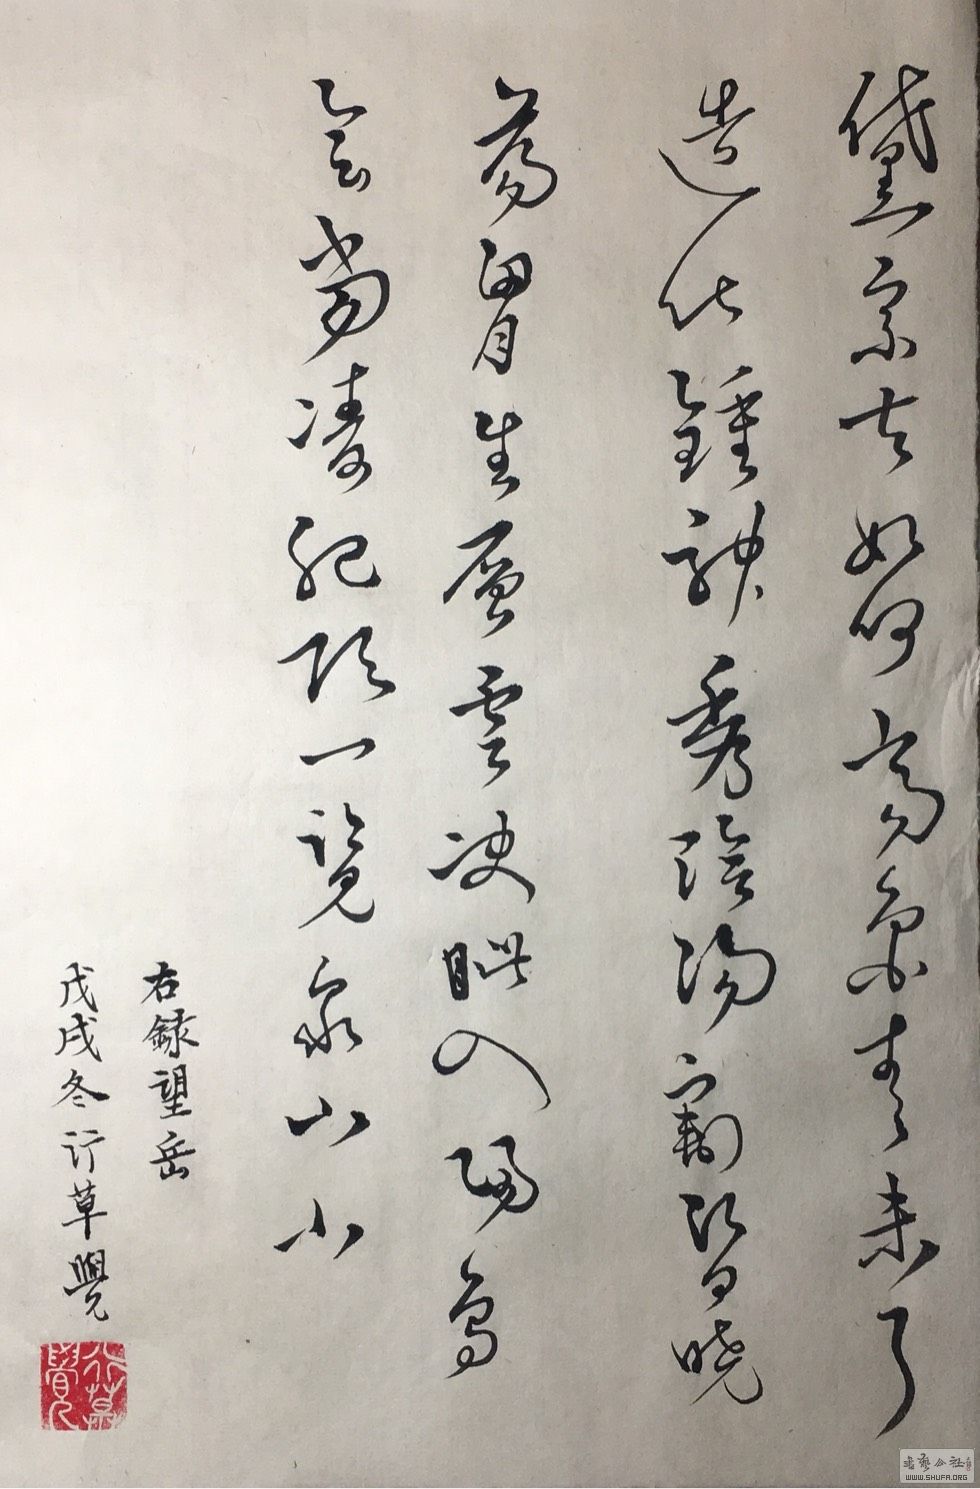 黛宗夫如何齊魯青未了
造化鍾神秀陰陽割昏曉
蕩胷生層雲決眦入歸鳥
會當凌絕頂一覽眾山小
右錄望岳
戊戌冬行草覺
行草覺
書藝公社
WWW.SHUFA.ORG